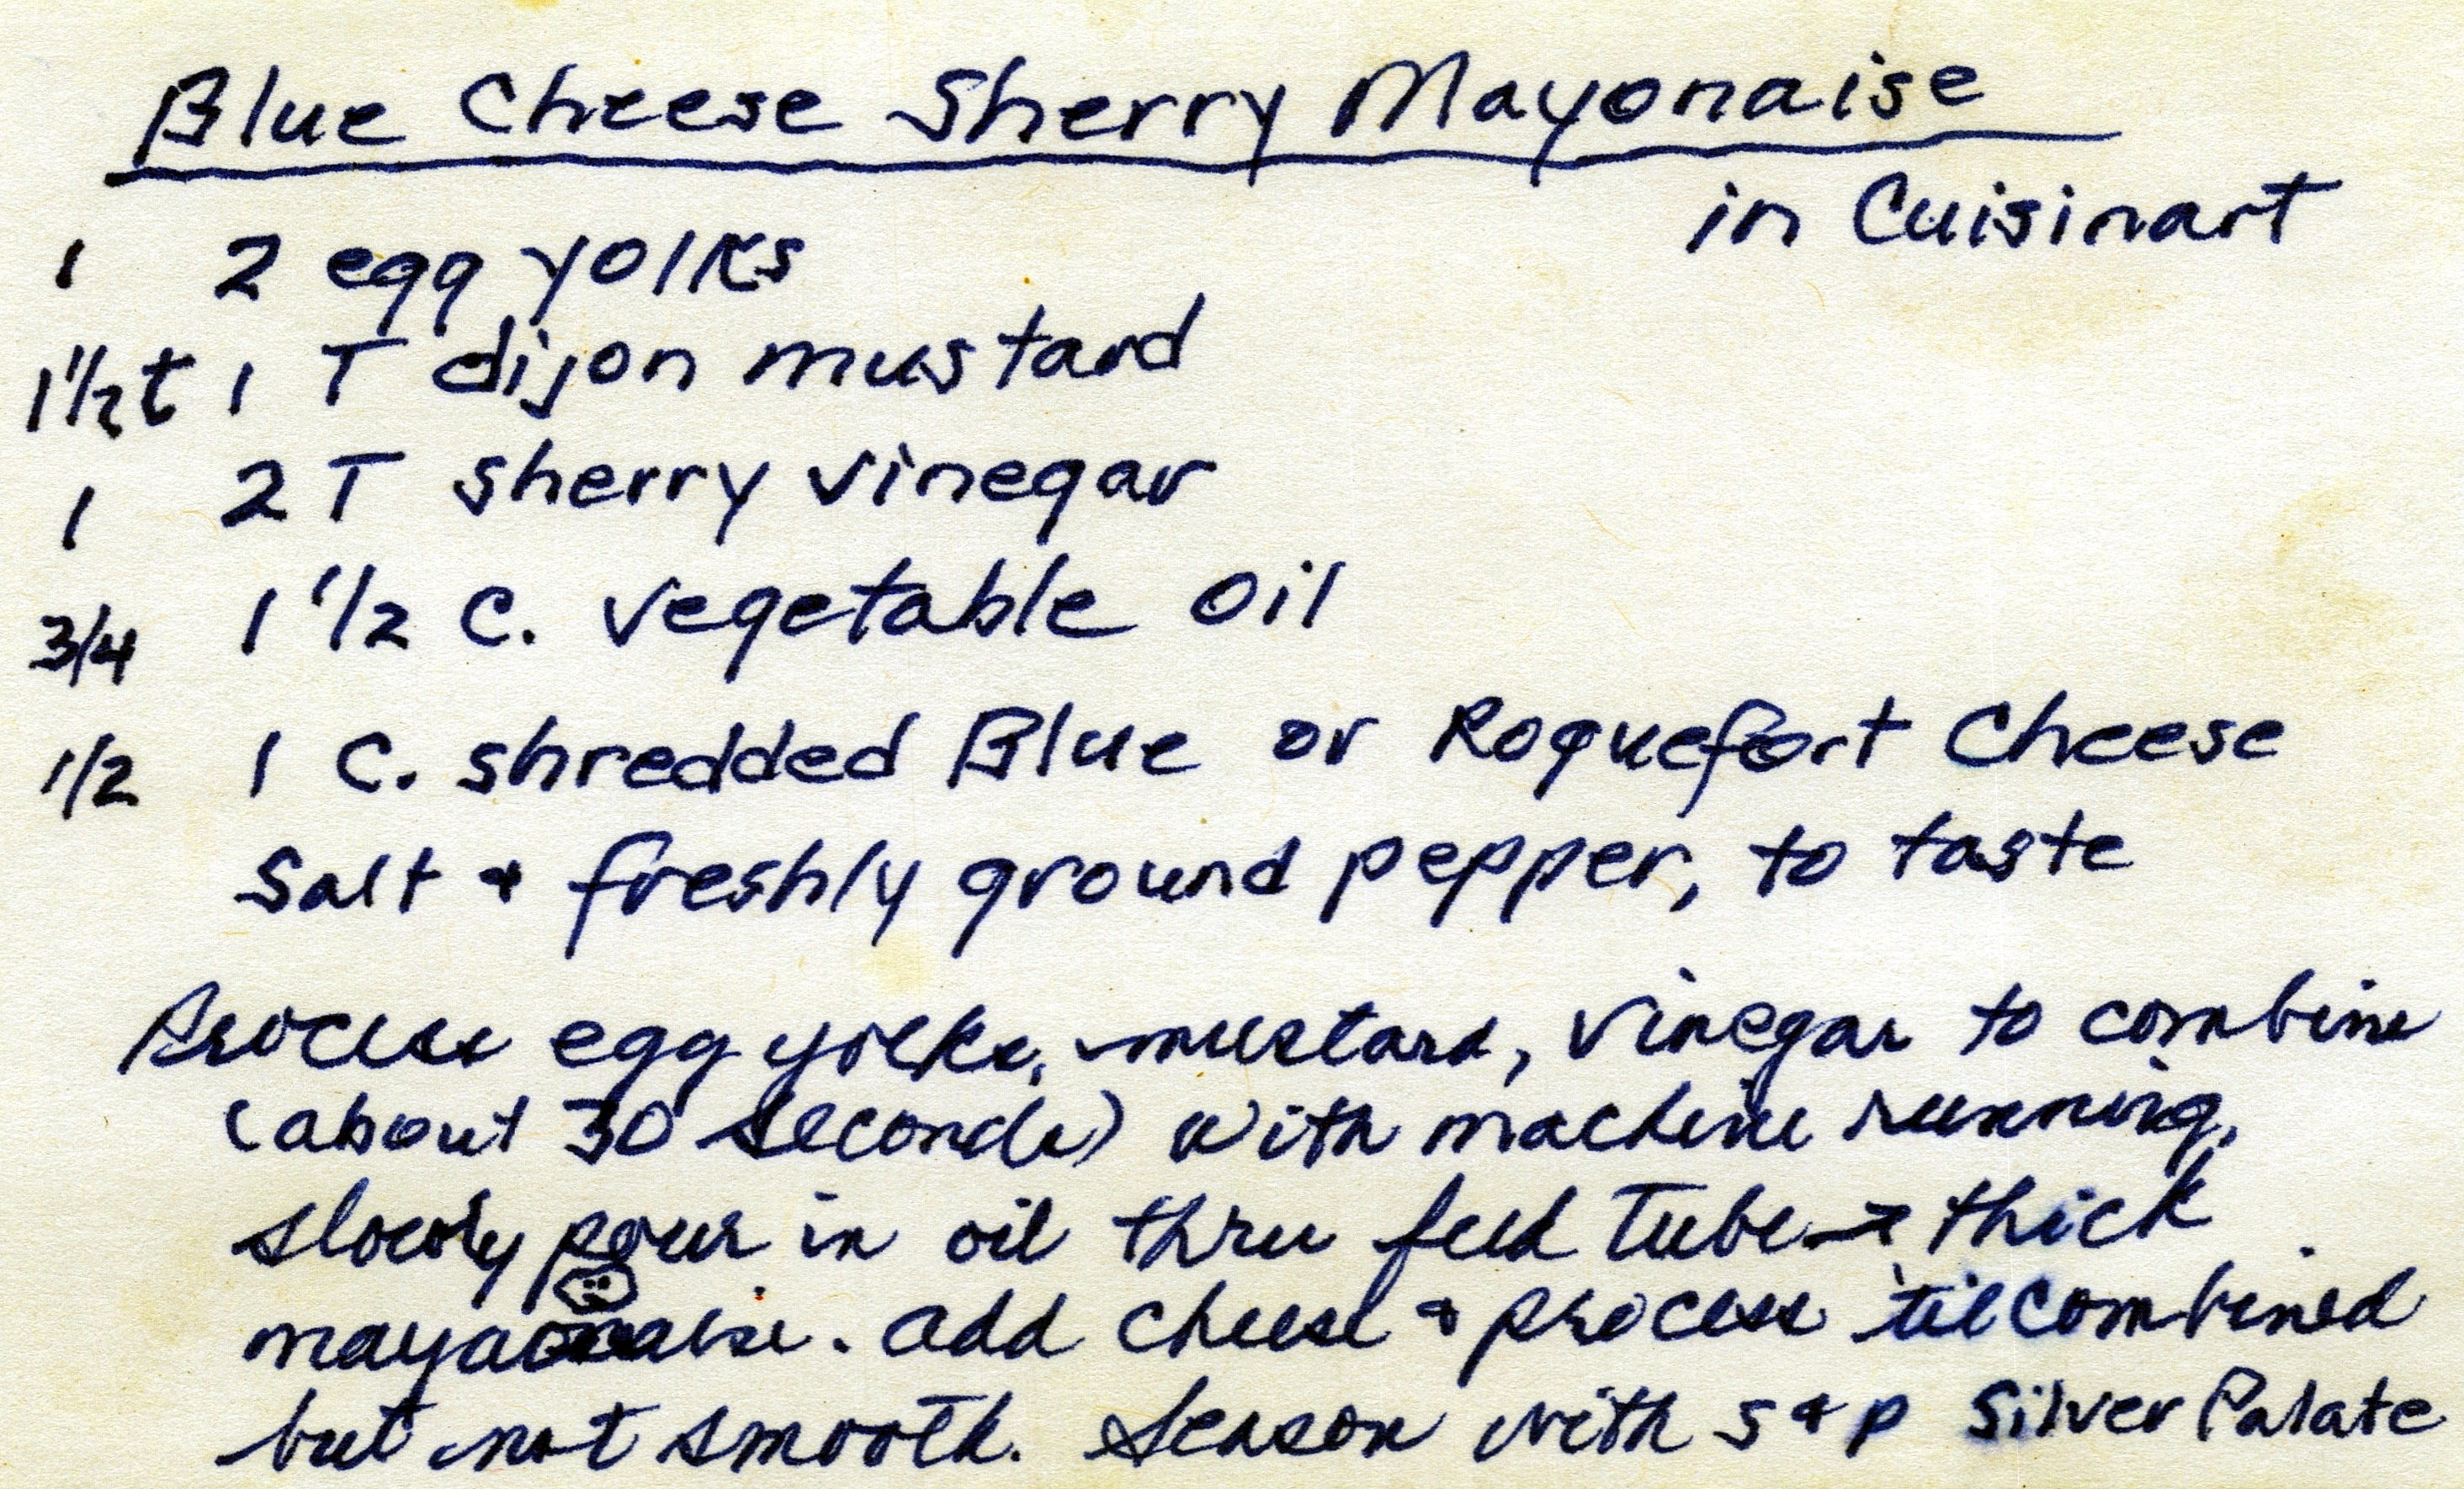 Blue Cheese Sherry Mayonaise
in Cuisinart
1 2 egg yolks
1 1/2 t 1 T dijon mustard
1 2 T sherry vinegar
3/4 1 1/2 c. vegetable oil
1/2 1 c. shredded Blue or Roquefort Cheese
Salt & freshly ground pepper, to taste
Process egg yolks, mustard, vinegar to combine
(about 30 seconds) with machine running,
slowly pour in oil thru feed tube → thick
mayonaise. add cheese & process 'til combined
but not smooth. Season with s & p Silver Palate